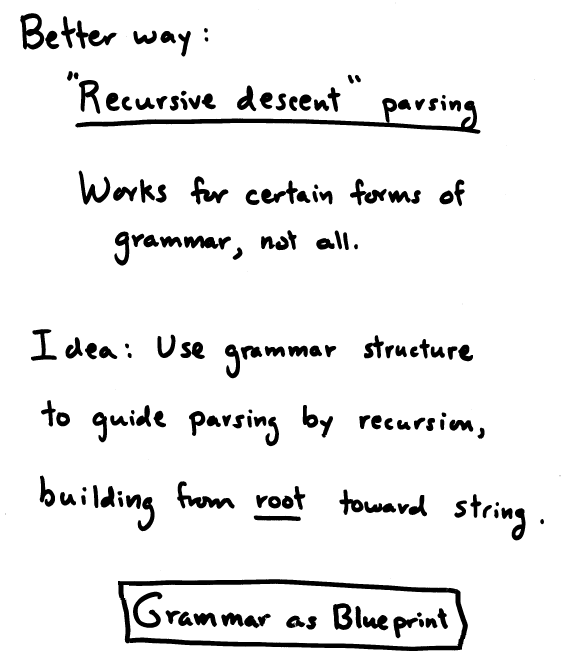 Better way:
"Recursive descent" parsing
Works for certain forms of
grammar, not all.
Idea: Use grammar structure
to guide parsing by recursion,
building from root toward string.
Grammar as Blueprint